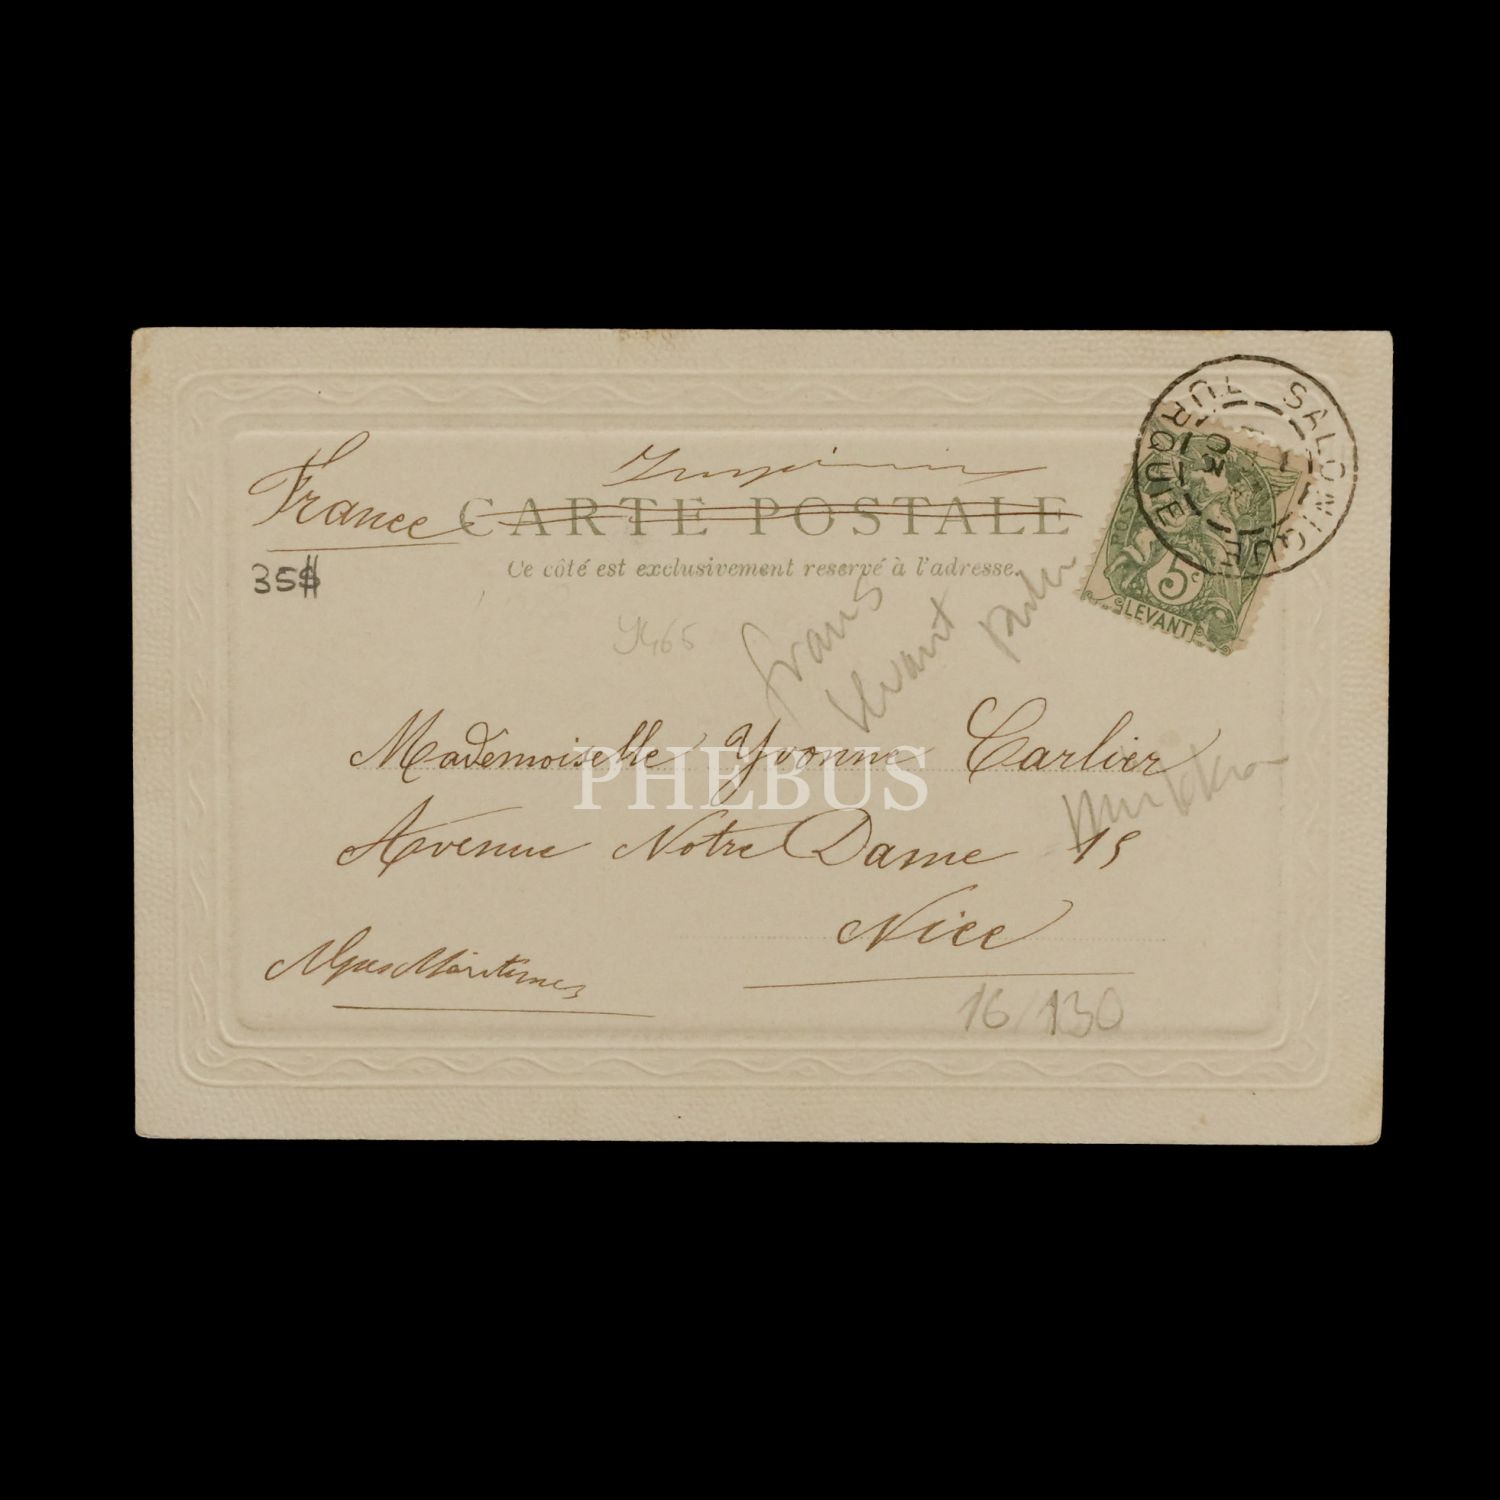 France
CARTE POSTALE
Ce côté est exclusivement reservé à l'adresse.
SALONIQUE
TURQUIE
5c
LEVANT
35$
Levant
Mademoiselle Yvonne Carlier
PHEBUS
Avenue Notre Dame 15
Nice
Alpes Maritimes
16/130